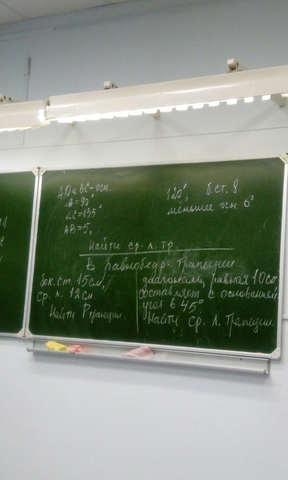 AD и BC-осн.
∠A=90°
∠C=135°
AB=5,
120°, б.ст. 8
меньшее осн 6
Найти ср. л. тр
В равнобедр. трапеции
бок. ст. 15см,
ср. л. 12см
Найти Pтрапеции.
диагональ, равная 10см
составляет с основанием
угол в 45°
Найти ср. л. Трапеции.